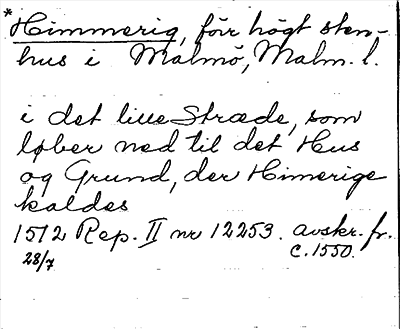 *Himmerig, förr högt sten-
hus i Malmö, Malm. l.
i det lille Stræde, som
løber ned til det Hus
og Grund, der Himerige
kaldes
1512 Rep. II nr 12253. avskr. fr.
28/7 c. 1550.